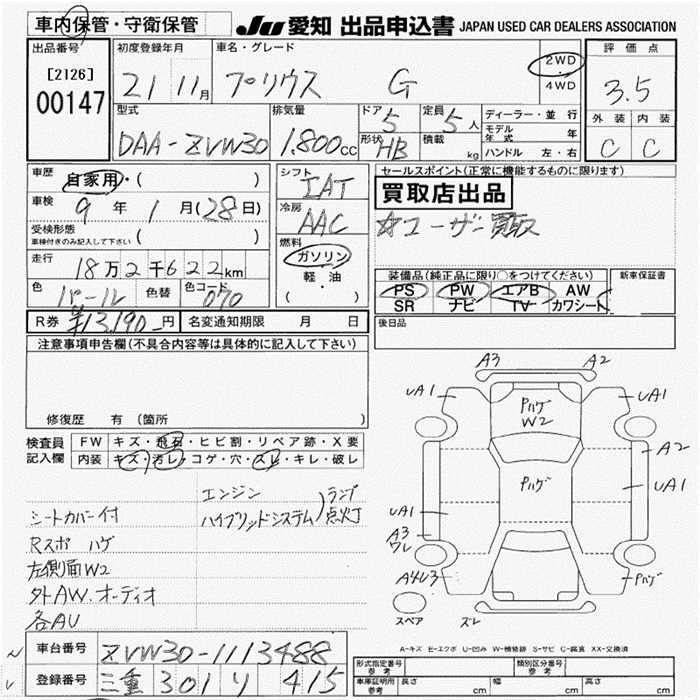 車内保管・守衛保管
JU 愛知 出品申込書 JAPAN USED CAR DEALERS ASSOCIATION
出品番号
[2126]
00147
初度登録年月
21 11月
車名・グレード
プリウス G
2WD
4WD
評価点
3.5
外装 内装
C C
型式
DAA-ZVW30
排気量
1.800cc
ドア 5
形状 HB
定員 5人
積載 kg
ディーラー・並行
モデル年式 年
ハンドル 左・右
車歴
自家用・( )
車検
9年 1月(28日)
受検形態
車検付きのみ記入して下さい ( )
走行
18万2千622km
色 パール 色替 色コード 070
シフト
IAT
冷房
AAC
燃料
ガソリン
軽・油
( )
セールスポイント(正常に機能するものに限ります)
買取店出品
☆ユーザー買取
装備品(純正品に限り○をつけてください)
PS PW エアB AW
SR ナビ TV カワシート
新車保証書
後日品
R券 ¥13,190-円 名変通知期限 月 日
注意事項申告欄(不具合内容等は具体的に記入して下さい)
修復歴 有(箇所 )
検査員
記入欄
FW キズ・飛石・ヒビ割・リペア跡・X要
内装 キズ・汚レ・コゲ・穴・スレ・キレ・破レ
エンジン
ハイブリッドシステム
ランプ
点灯
シートカバー付
Rスポ ハゲ
左側面W2
外AW.オーディオ
各AU
A3 A2
UA1 UA1
Pハゲ
W2
A2
Pハゲ
UA1
UA1
A3
ワレ
A4U3
Pハゲ
スペア ズレ
A-キズ E-エクボ U-凹み W-補修跡 S-サビ C-腐食 XX-交換済
車台番号 ZVW30-1113488
登録番号 三重 301 リ 415
形式指定番号
参考
類別区分番号
参考
車庫証明用
参考
長さ cm 幅 cm 高さ cm